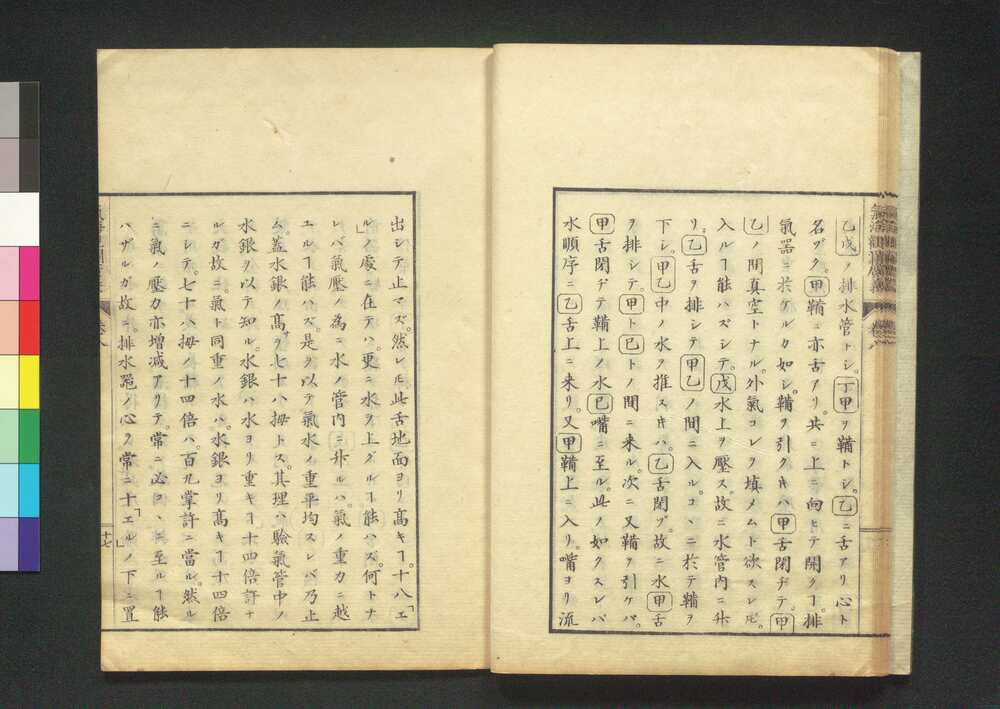 乙戊ヲ排水管トシ。丁甲ヲ鞴トシ。乙ニ舌アリ心ト
名ヅク。甲鞴ニ亦舌アリ。共ニ上ニ向ヒテ開クヿ。排
氣器ニ於ケルカ如シ。鞴ヲ引クキハ甲舌閉ヂテ。甲
乙ノ間真空トナル。外氣コレヲ填メムト欲スレ𪜈。
入ルヿ能ハズシテ。戊水上ヲ壓ス。故ニ水管内ニ升
リ。乙舌ヲ排シテ甲乙ノ間ニ入ル。コヽニ於テ鞴ヲ
下シ。甲乙中ノ水ヲ推スキハ。乙舌閉ヅ。故ニ水甲舌
ヲ排シテ。甲ト巳トノ間ニ来ル。次ニ又鞴ヲ引ケバ。
甲舌閉ヂテ鞴上ノ水巳嘴ニ至ル。此ノ如クスレバ
水順序ニ乙舌上ニ来リ。又甲鞴上ニ入リ。嘴ヨリ流
出シテ止マズ。然レ𪜈此舌地面ヨリ高キヿ。十八「エ
ル」ノ處ニ在テハ。更ニ水ヲ上グルヿ能ハズ。何トナ
レバ氣壓ノ為ニ水ノ管内ニ升ルハ。氣ノ重力ニ越
ユルヿ能ハズ。是ヲ以テ氣水ノ重平均スレバ乃止
ム。蓋水銀ノ高ヲ七十八拇トス。其理ハ驗氣管中ノ
水銀ヲ以テ知ル。水銀ハ水ヨリ重キヿ十四倍許ナ
ルガ故ニ。氣ト同重ノ水ハ。水銀ヨリ高キヿ十四倍
ニシテ。七十八拇ノ十四倍ハ。百九掌許ニ當ル。然ル
ニ氣ノ壓力亦増減アリテ。常ニ必コヽニ至ルヿ能
ハザルガ故ニ。排水
ノ心ヲ常ニ十「エル」ノ下ニ置
十七